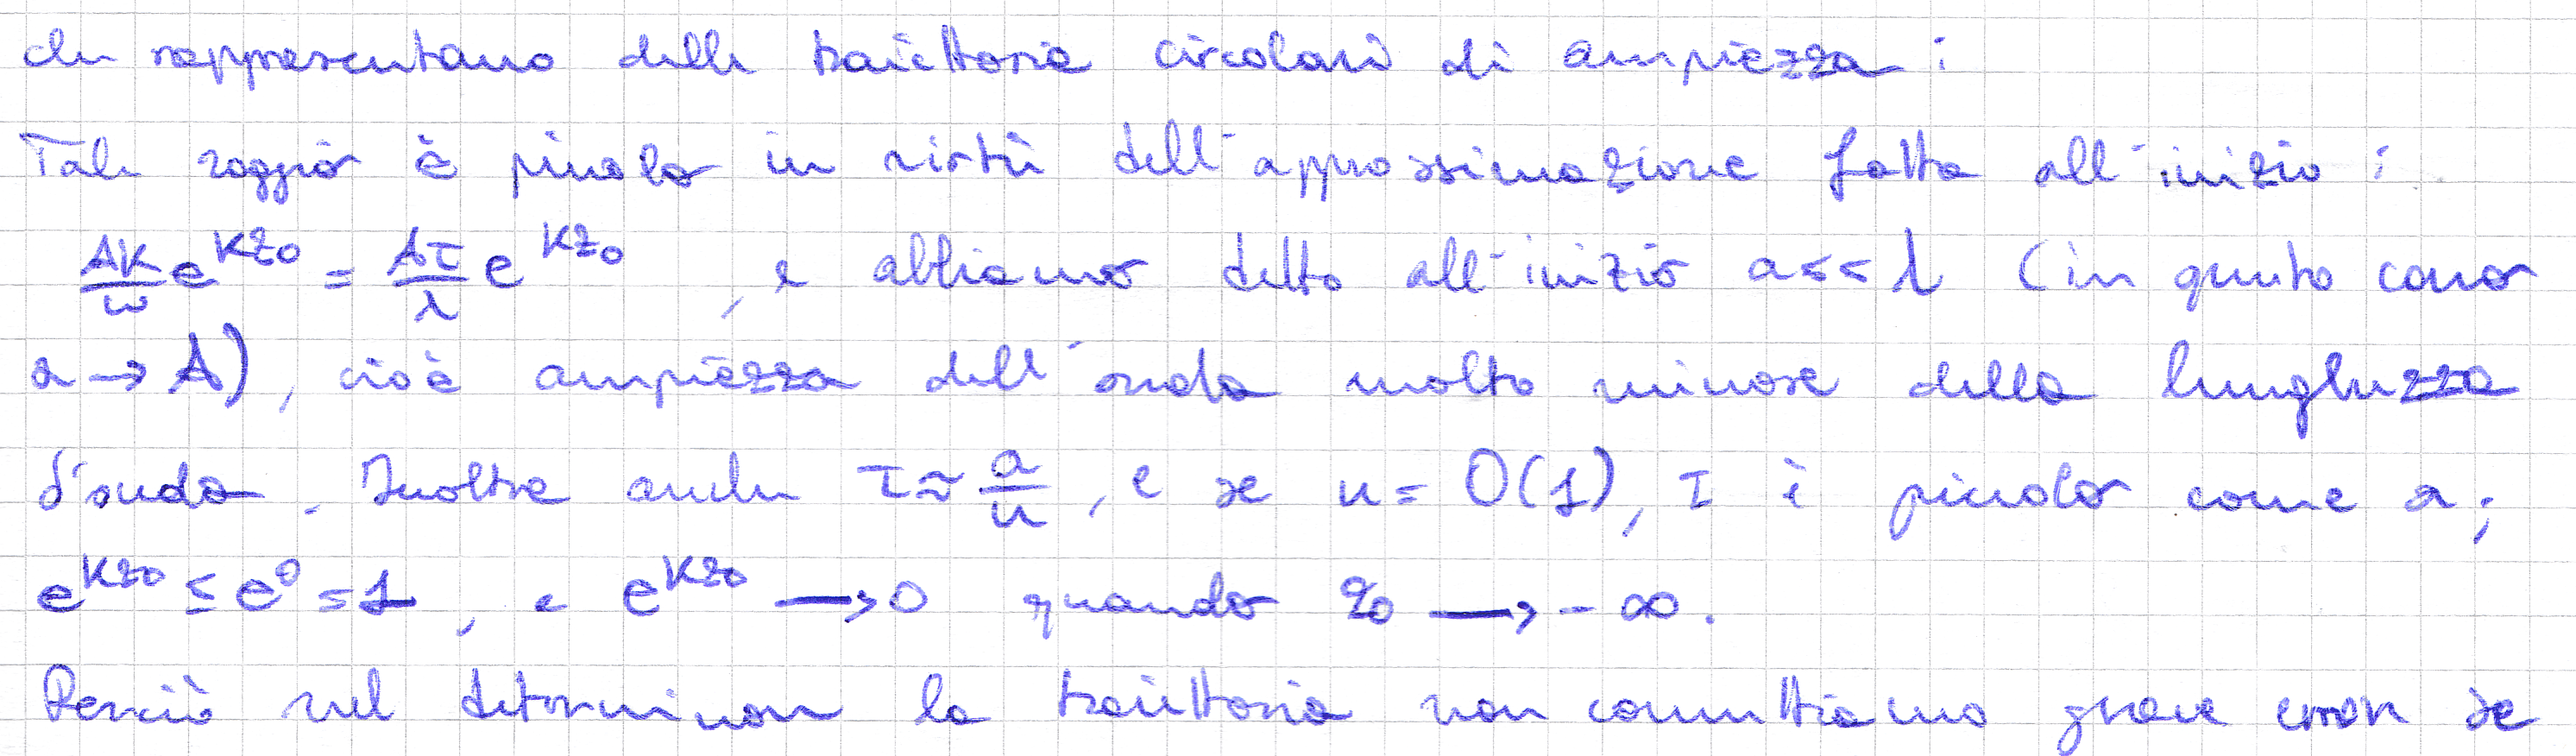 che rappresentano delle traiettorie circolari di ampiezza :
Tale raggio è piccolo in virtù dell'approssimazione fatta all'inizio :
\frac{AK}{ω} e^{Kz_0} = \frac{Aτ}{λ} e^{Kz_0} , e abbiamo detto all'inizio a << λ (in questo caso
a → A) , cioè ampiezza dell'onda molto minore della lunghezza
d'onda . Inoltre anche τ ≈ \frac{a}{u} , e se u = O(1), τ è piccolo come a ;
e^{Kz_0} ≤ e^0 = 1 , e e^{Kz_0} → 0 quando z_0 → - ∞ .
Perciò nel determinare la traiettoria non commettiamo grave errore se